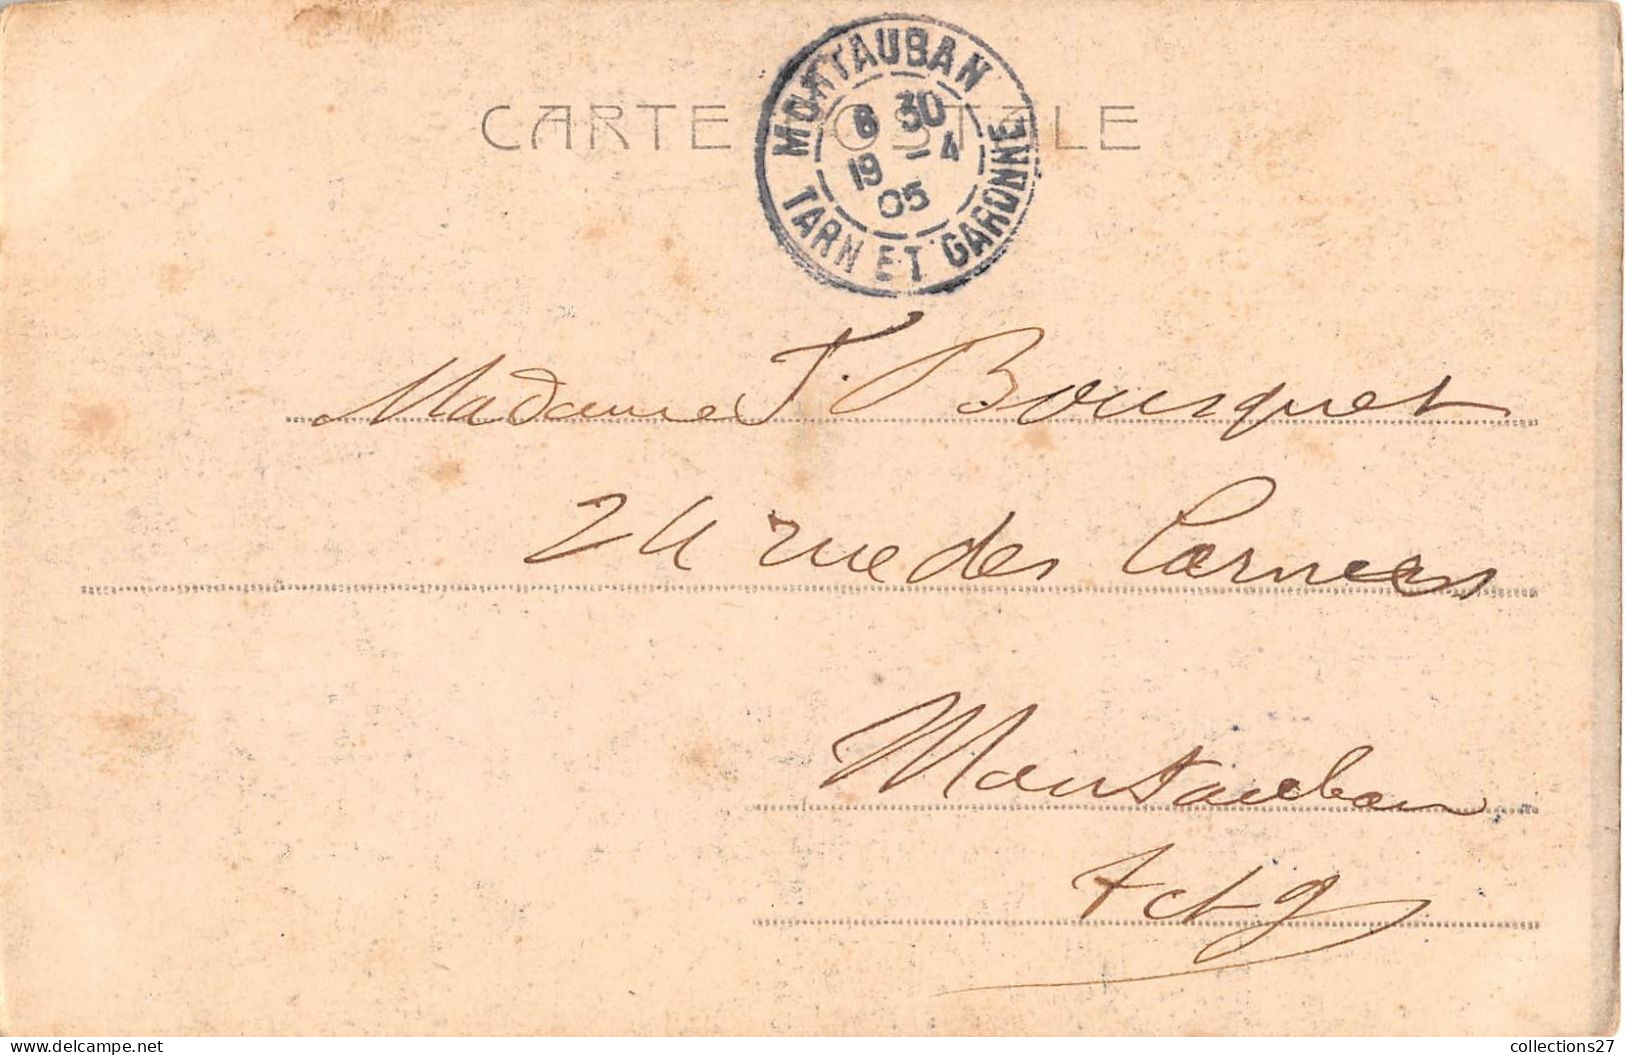 CARTE POSTALE
MONTAUBAN
8 30
19 - 4
05
TARN ET GARONNE
Madame J. Bousquet
24 rue des Carmes
Montauban
T et G
delcampe.net
collections27